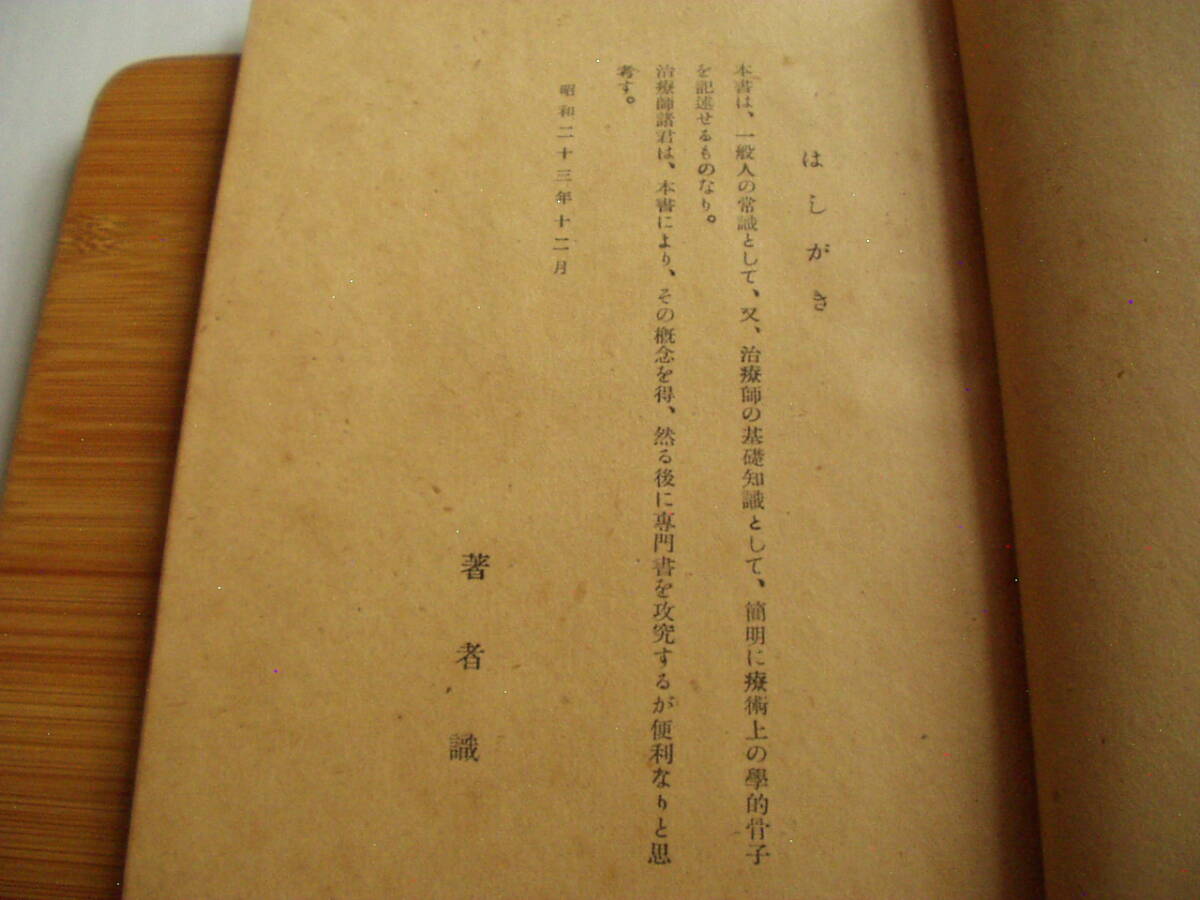 はしがき
本書は、一般人の常識として、又、治療師の基礎知識として、簡明に療術上の學的骨子
を記述せるものなり。
治療師諸君は、本書により、その概念を得、然る後に專門書を攻究するが便利なりと思
考す。
昭和二十三年十二月
著者識